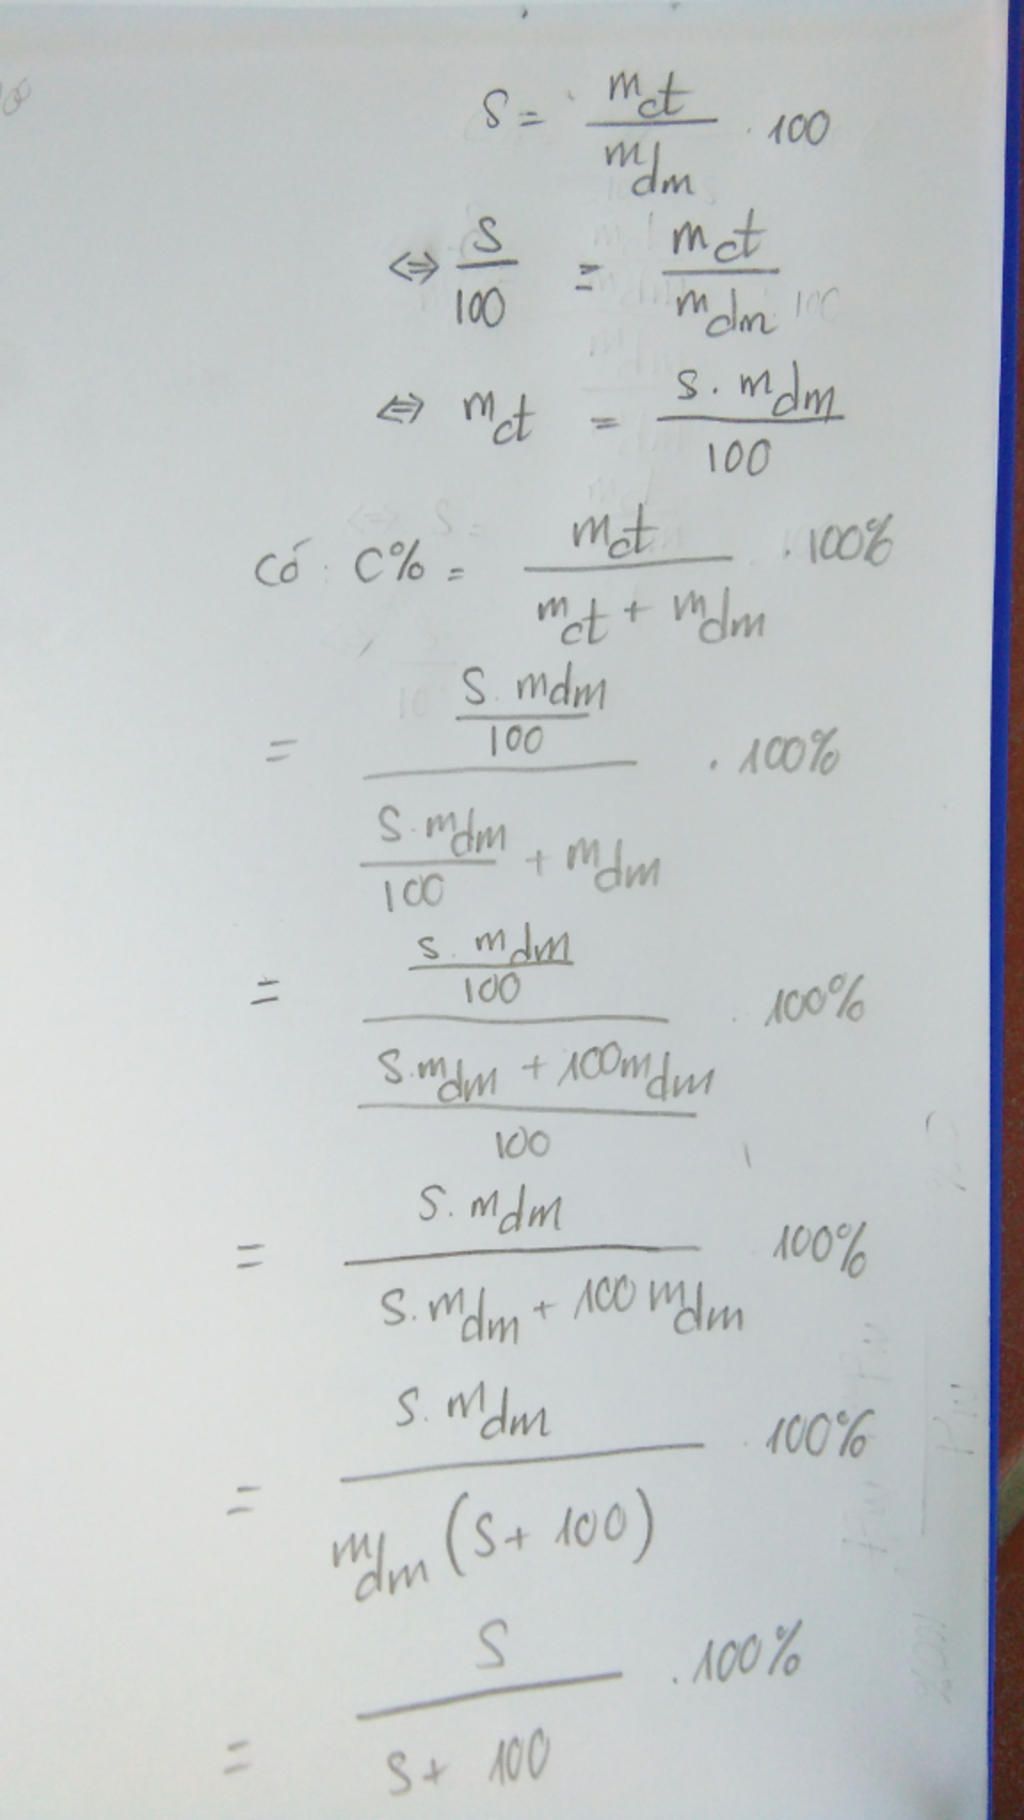 S = m_ct / m_dm . 100
⇔ S / 100 = m_ct / m_dm
⇔ m_ct = S . m_dm / 100
Có : C% = m_ct / (m_ct + m_dm) . 100%
= (S . m_dm / 100) / (S . m_dm / 100 + m_dm) . 100%
= (S . m_dm / 100) / ((S . m_dm + 100 m_dm) / 100) . 100%
= S . m_dm / (S . m_dm + 100 m_dm) 100%
= S . m_dm / m_dm (S + 100) . 100%
= S / (S + 100) . 100%